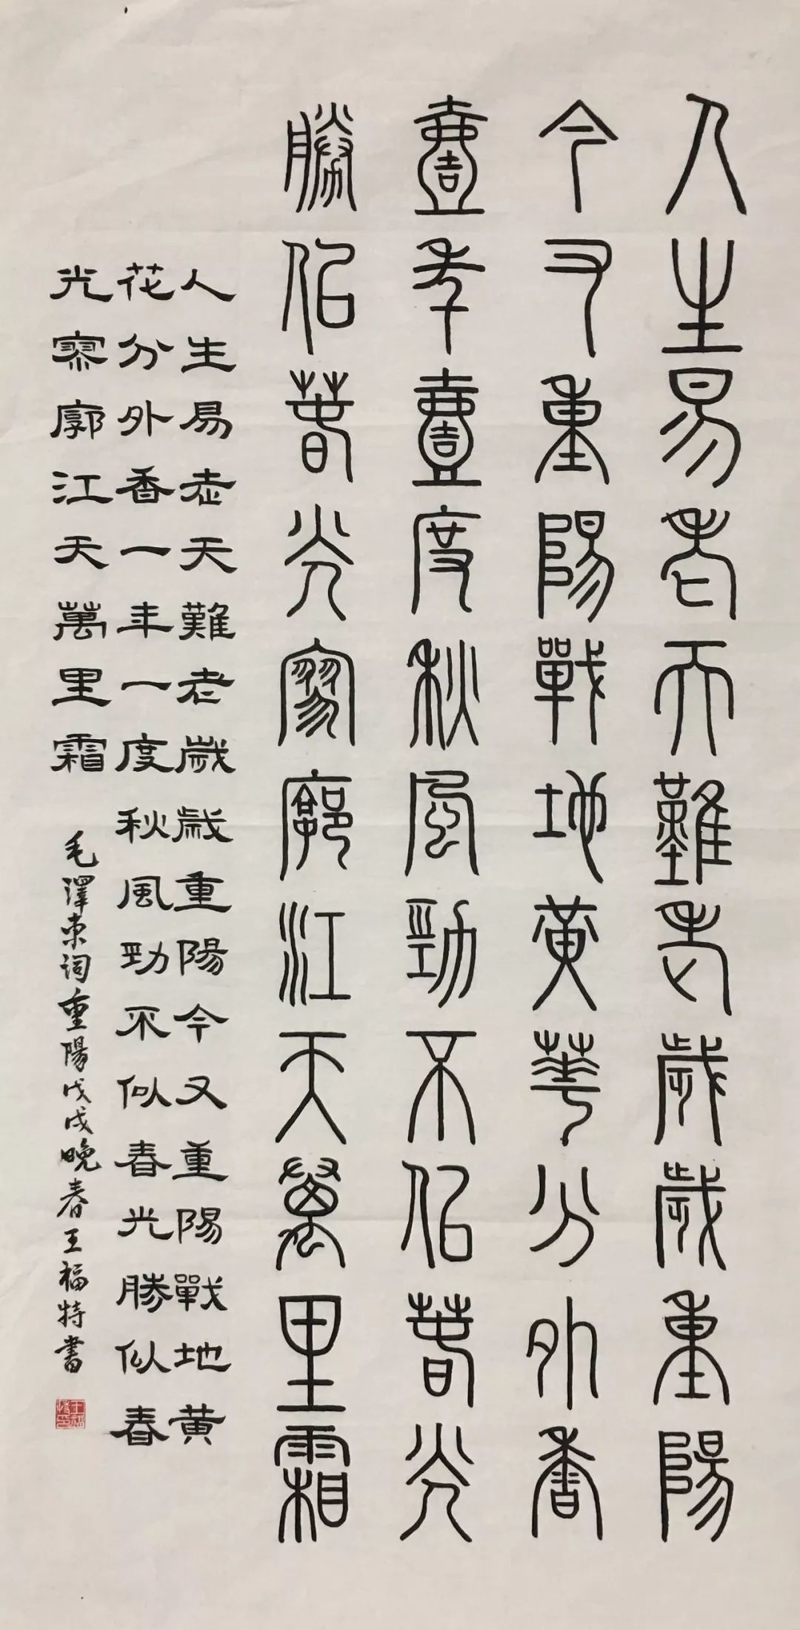 人生易老天難老歲歲重陽
今又重陽戰地黄華分外香
壹年壹度秋風勁不佀春光
勝佀春光寥廓江天萬里霜
人生易老天難老歲歲重陽今又重陽戰地黄
花分外香一年一度秋風勁不似春光勝似春
光寥廓江天萬里霜
毛澤東詞重陽戊戌晚春王福特書